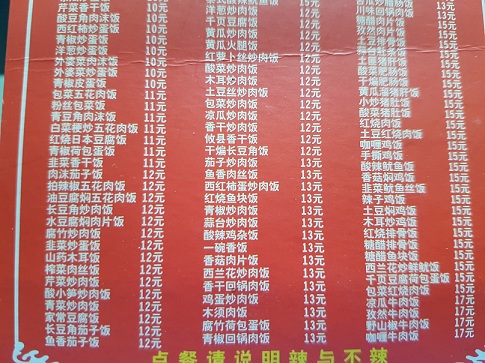 芹菜香干饭 10元
酸豆角肉沫饭 10元
西红柿炒蛋饭 10元
青椒炒蛋饭 10元
洋葱炒蛋饭 10元
外婆菜肉沫饭 10元
外婆菜炒蛋饭 10元
青椒皮蛋饭 10元
包菜五花肉饭 11元
粉丝包菜饭 11元
青豆角肉沫饭 11元
白菜梗炒五花肉饭 11元
红烧日本豆腐饭 11元
青椒荷包蛋饭 11元
韭菜香干饭 11元
肉沫茄子饭 12元
拍辣椒五花肉饭 12元
油豆腐焖五花肉饭 12元
长豆角炒肉饭 12元
水豆腐焖肉片饭 12元
腐竹炒肉饭 12元
韭菜炒蛋饭 12元
山药木耳饭 12元
榨菜肉丝饭 12元
芹菜炒肉饭 12元
酸小笋炒肉饭 12元
青菜炒肉饭 12元
家常豆腐饭 12元
长豆角茄子饭 12元
鱼香茄子饭 12元
洋葱炒肉饭 12元
千页豆腐饭 12元
黄瓜炒肉饭 12元
黄瓜火腿饭 12元
红萝卜丝炒肉饭 12元
酸菜炒肉饭 12元
木耳炒肉饭 12元
土豆丝炒肉饭 12元
包菜炒肉饭 12元
凉瓜炒肉饭 12元
香干炒肉饭 12元
攸县香干饭 12元
干煸长豆角饭 12元
茄子炒肉饭 13元
鱼香肉丝饭 13元
西红柿蛋炒肉饭 13元
红烧鱼块饭 13元
青椒炒肉饭 13元
蒜台炒肉饭 13元
酸辣鸡杂饭 13元
一碗香饭 13元
香菇肉片饭 13元
西兰花炒肉饭 13元
香干回锅肉饭 13元
鸡蛋炒肉饭 13元
木须肉饭 13元
腐竹荷包蛋饭 13元
青椒回锅肉饭 13元
川味回锅肉饭 13元
糖醋肉片饭
土豆排骨饭
酸菜肥肠饭
干煸肥肠饭
黄瓜溜猪肝饭
小炒猪肚饭
酸菜猪肚饭
红烧肉饭 15元
土豆红烧肉饭 15元
咖喱鸡饭 15元
手撕鸡饭 15元
酸辣鱿鱼饭 15元
香菇焖鸡饭 15元
韭菜鱿鱼丝饭 15元
辣子鸡饭 15元
土豆焖鸡饭 15元
木耳炒鸡饭 15元
红烧排骨饭 15元
糖醋排骨饭 15元
糖醋鱼块饭 15元
西兰花炒鲜鱿饭 15元
千页豆腐荷包蛋饭 15元
包菜红烧肉饭 15元
凉瓜牛肉饭 17元
孜然牛肉饭 17元
野山椒牛肉饭 17元
咖喱牛肉饭 17元
点餐请说明辣与不辣